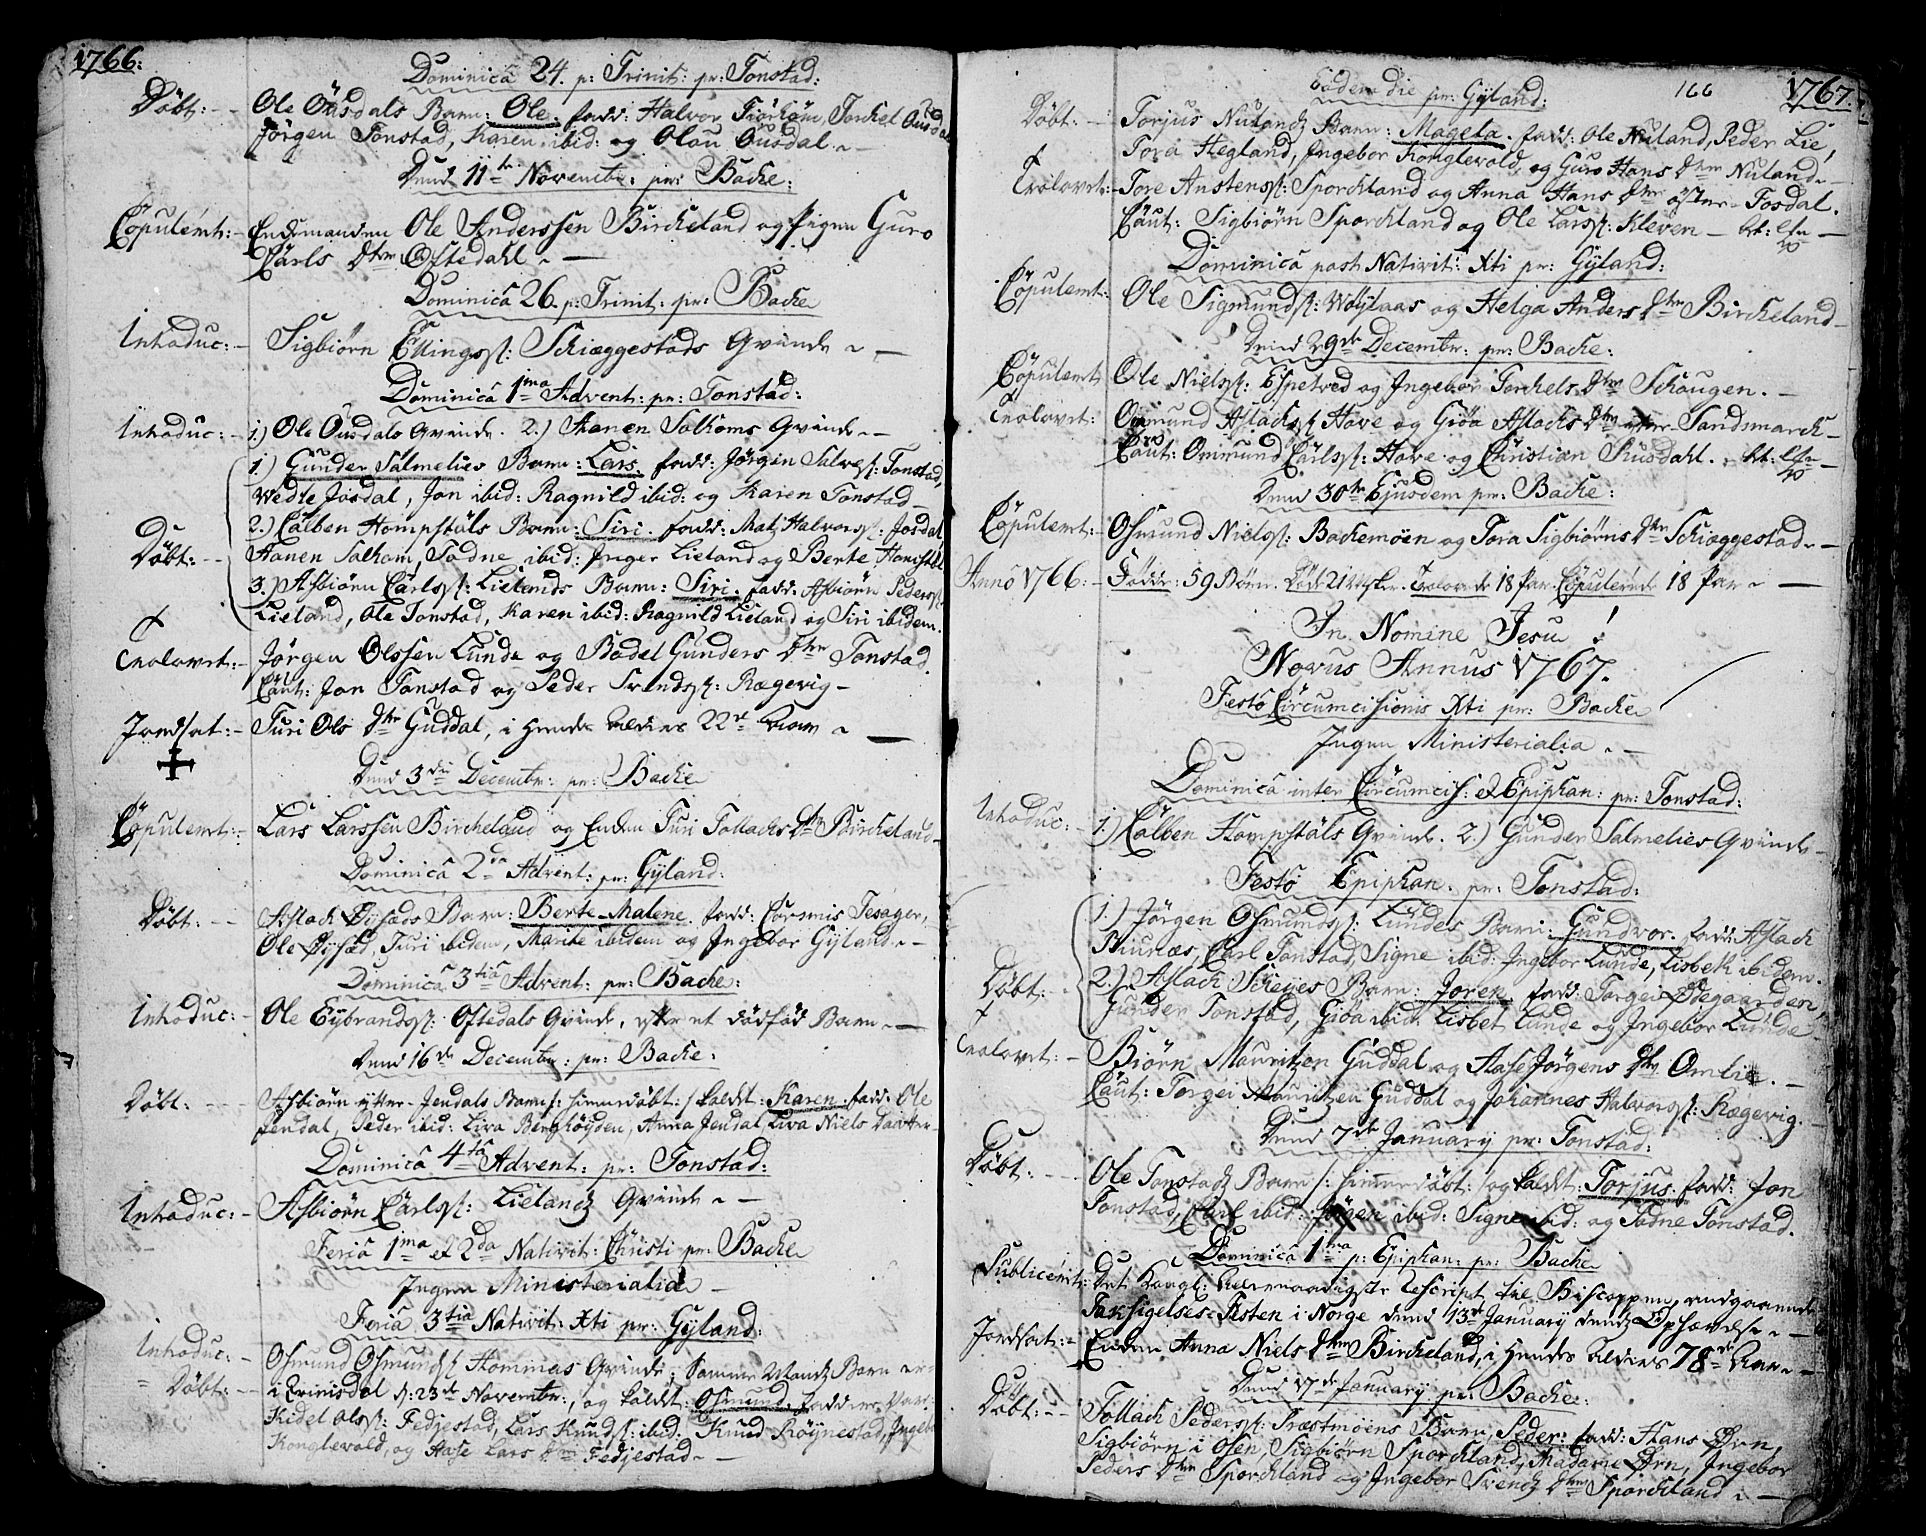 1766:
Dominica 24. p: Trinit: pr: Tonstad:
Döbt: -- Ole Ousdals Barn: Ole. fadd: Halvor Tiörhom, Torckel Ousdal
Jörgen Tonstad, Karen ibid: og Olau Ousdal.
Dend 11te Novembr: pr: Backe:
Copulerit: Enckemanden Ole Anderssen Birckeland og Pigen Guro
Carls Dtr Oftedahl.
Dominica 26. p: Trinit: pr: Backe
Introduc: Sigbiörn Ellingss: Schiæggestads Qvinde
Dominica 1ma Advent: pr: Tonstad:
Introduc: 1.) Ole Ousdals Qvinde. 2.) Hanen Salhoms Qvinde
1.) Gunder Salmelies Barn: Lars. fadd: Jörgen Salves: Tonstad,
Wedle Josdal, Jon ibid: Ragnild ibid: og Karen Tonstad
2.) Calben Hompstals Barn: Siri. fadd: Matz Halvors: Josdal
Döbt: Hanen Salhom, Tadne ibid: Inger Lieland og Berte Hompstal
3.) Asbiörn Carls: Lielands Barn: Siri. fadd: Asbiörn Peders:
Lieland, Ole Tonstad, Karen ibid: Ragnild Lieland og Siri ibidem.
Trolovet: Jörgen Olssen Lunde og Bodel Gunders Dtr Tonstad.
Caut: Jon Tonstad og Peder Svends: Rægevig
Jordsat: Turi Ols Dtr Guddal, i hendes alders 22de Aar
Dend 3die Decembr: pr: Backe
Copulerit: Lars Larssen Birckeland og Encken Turi Tollacks Dtr Birckeland
Dominica 2da Advent: pr: Gyland:
Döbt: -- Aslack Öysæds Barn: Berte-Malene. fadd: Tesager,
Ole Öysæd, Turi ibidem, Marite ibidem og Ingebor Gyland.
Dominica 3tia Advent: pr: Backe:
Introduc: Ole Eybrands: Oftedals Qvinde, efter et dödföd Barn
Dend 16de Decembr: pr: Backe:
Döbt: Asbiörn ytter-Jendals Barn: hiemedöbt: kaldt: Karen. fadd: Ole
Jendal, Peder ibid: Liva Berghöyden, Anna Jendal, Liva Niels Datter
Dominica 4ta Advent: pr: Tonstad:
Introduc: Asbiörn Carls: Lielandz Qvinde
Feria 1ma et 2da Nativit: Christi pr: Backe
Ingen Ministerialia
Feria 3tia Nativit: Xti pr: Gyland:
Introduc: Osmund Osmunds: Hommas Qvinde; Samme Mands Barn er
Döbt: i Qvinisdal d: 23de Novembr:, og kaldt: Osmund. fadderne var:
Kidel Ols: Fedjestad, Lars Knuds: ibid: Knud Röynestad, Ingebor
Konglevold, og Aase Lars Dtr Fedjestad
166
1767.
Eodem die pr: Gyland:
Döbt. Torjus Nulandz Barn: Mageta. fadd: Ole Nuland, Peder Lie,
Tora Hegland, Ingebor Konglevold, og Guro Hans Dtr Nuland
Trolovet: Tore Austens: Sporckland og Anna Hans Dtr öfter-Fosdal.
Caut: Sigbiörn Sporckland og Ole Lars: Kleven
Dominica post Nativit: Xti pr: Gyland:
Copulerit: Ole Sigmunds: Woylaas og Helga Anders Dtr Birckeland
Dend 29de Decembr: pr: Backe:
Copulerit: Ole Niels: Espetved og Ingebor Torckels Dtr Schougen.
Trolovet: Omund Aslacks: Hove og Giöa Aslacks Dtr Sandsmarck
Caut: Ommund Carls: Hove og Christian Skusdahl.
Dend 30te Ejusdem pr: Backe:
Copulerit: Osmund Niels: Backemöen og Tora Sigbiörns Dtr Schiæggestad
Anno 1766: Födde: 59 Börn. Döde 21 Trolovede 18 Par. Copulerede 18 Par
In Nomine Jesu!
Novus Annus 1767.
Festo Circumcisionis Xti pr: Backe
Ingen Ministerialia
Dominica inter Circumcis: et Epiphan: pr: Tonstad:
Introduc: 1.) Calben Hompstals Qvinde. 2.) Gunder Salmelies Qvinde
Festo Epiphan: pr: Tonstad:
1.) Jörgen Osmunds: Lundes Barn: Gundvor. fadd: Aslach
Skiurnæs, Carl Tonstad, Signe ibid: Ingebor Lunde, Lisbeth ibidem.
Döbt: 2.) Aslach Scheyes Barn: Joren. fadd: Torgei Ödegaarden,
Gunder Tonstad, Giöa ibid: Lisbet Lunde og Ingebor Lunde
Trolovet: Biörn Mauritzen Guddal og Aase Jörgens Dtr Omlie.
Caut: Torgei Mauritzen Guddal og Johannes Halvors: Rægevig.
Dend 7de January pr: Tonstad:
Döbt: Ole Tonstadz Barn: hiemmedöbt: og kaldt: Torjus. fadd: Jon
Tonstad, Carl ibid: Jörgen ibid: Signe ibid: og Tadne Tonstad.
Dominica 1ma p: Epiphan: pr: Backe
Publicerit: Det Kongl: allernaadigste Rescript til Biscoppen, angaaende
Taksigelses-Festen i Norge dend 13de January dendz Ophævelse
Jordsat: Encken Anna Niels Dtr Birckeland, i hendes alders 78de Aar
Dend 17de January pr: Backe:
Döbt: Tollach Peders: Præstmoens Barn, Peder: fadd: Hans Örn,
Sigbiörn i Osen, Sigbiörn Sporckland, Madame Örn, Ingebor
Peders Dtr Sporckland og Ingebor Svends Dtr Sporckland